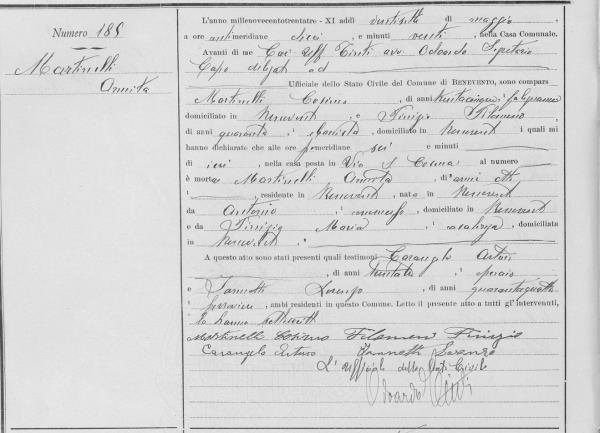 Numero 185
Martinelli
Annita
L'anno millenovecentotrentatre - XI addì ventisette di maggio,
a ore antimeridiane dieci, e minuti venti, nella Casa Comunale.
Avanti di me Cav. Uff. Tinti avv. Odoardo Segretario
Capo delegato ad
Ufficiale dello Stato Civile del Comune di BENEVENTO, sono comparsi
Martinelli Cosimo, di anni trentacinque, falegname
domiciliato in Benevento e Finizio Filomeno,
di anni quaranta, domiciliato in Benevento i quali mi
hanno dichiarato che alle ore pomeridiane sei e minuti
di ieri, nella casa posta in Via S Cosma al numero
è morta Martinelli Annita, di anni otto
, residente in Benevento, nata in Benevento
da Antonio, domiciliato in Benevento
e da Finizio Maria, casalinga, domiciliata
in Benevento
A questo atto sono stati presenti quali testimoni Carangelo Arturo
, di anni trentatre, operaio
e Iannotti Lorenzo, di anni quarantaquattro
ferroviere, ambi residenti in questo Comune. Letto il presente atto a tutti gl' intervenuti,
lo hanno sottoscritto
Martinelli Cosimo Filomeno Finizio
Carangelo Arturo Iannotti Lorenzo
L'Ufficiale dello Stato Civile
Odoardo Tinti